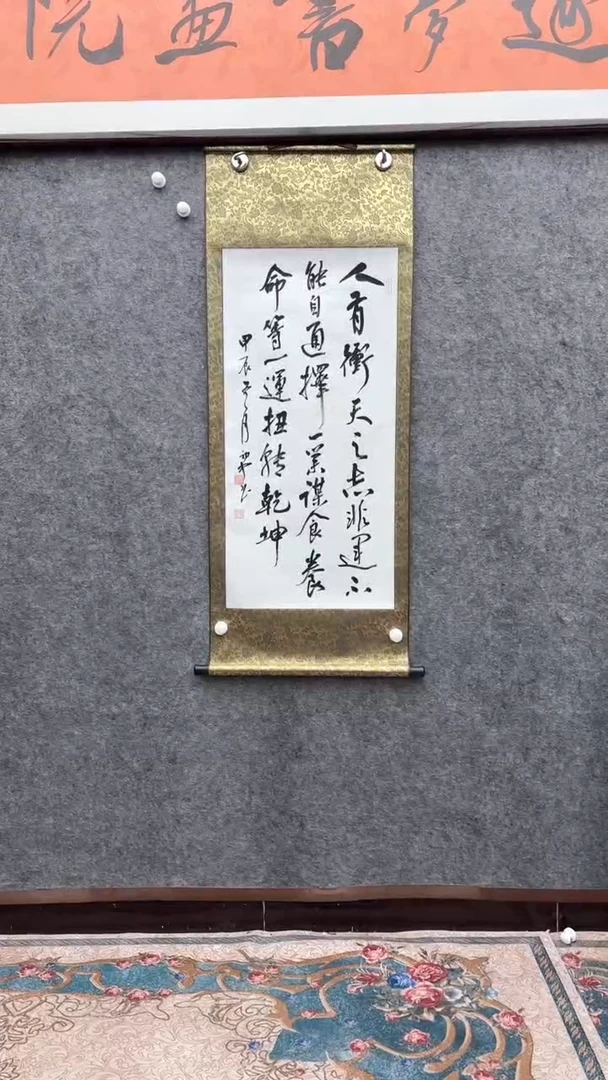 逐夢書画院
人有衝天之志非運不
能自通擇一業謀食養
命等一運扭轉乾坤
甲辰子月